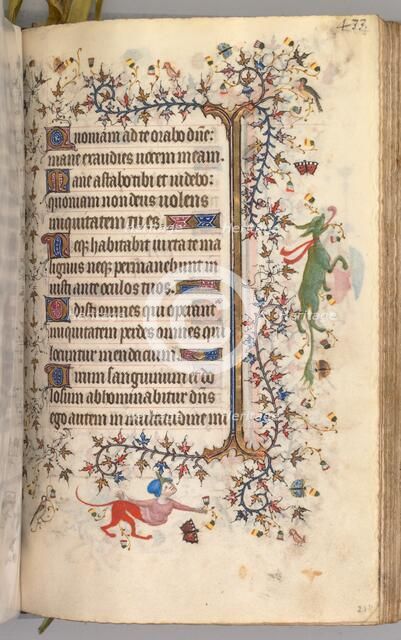 433
Quoniam ad te orabo dñe:
mane exaudies uocem meam.
Mane astabo tibi et uidebo:
quoniam non deus uolens
iniquitatem tu es.
Neqȝ habitabit iuxta te ma
lignus neqȝ permanebunt in
iusti ante oculos tuos.
Odisti omnes qui operant
iniquitatem perdes omnes qui
locuntur mendacium.
Uirum sanguinum et do
losum abhominabitur dñs
ego autem in multitudine mi
Heritage